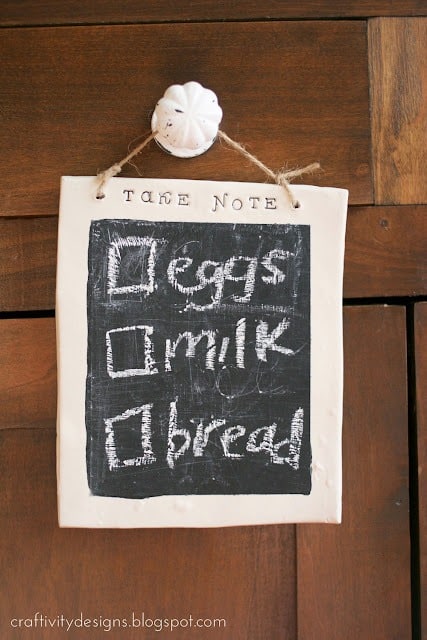 TAKE NOTE
eggs
milk
bread
craftivitydesigns.blogspot.com